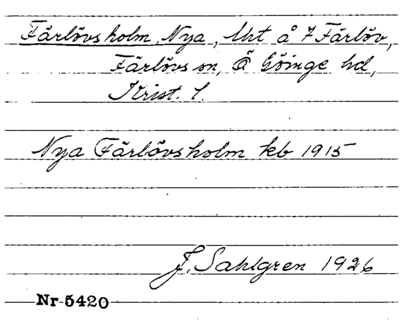 Färlövsholm, Nya, lht å 7 Färlöv,
Färlövs sn, Ö Göinge hd,
Krist. l.
Nya Färlövsholm kb 1915
J. Sahlgren 1926
Nr 5420